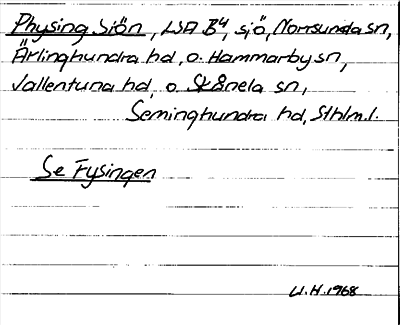 Physing Siön, LSA B4, sjö, Norrsunda sn,
Ärlinghundra hd, o. Hammarby sn,
Vallentuna hd, o. Skånela sn,
Seminghundra hd, Sthlm.l.
Se Fysingen
U.H. 1968